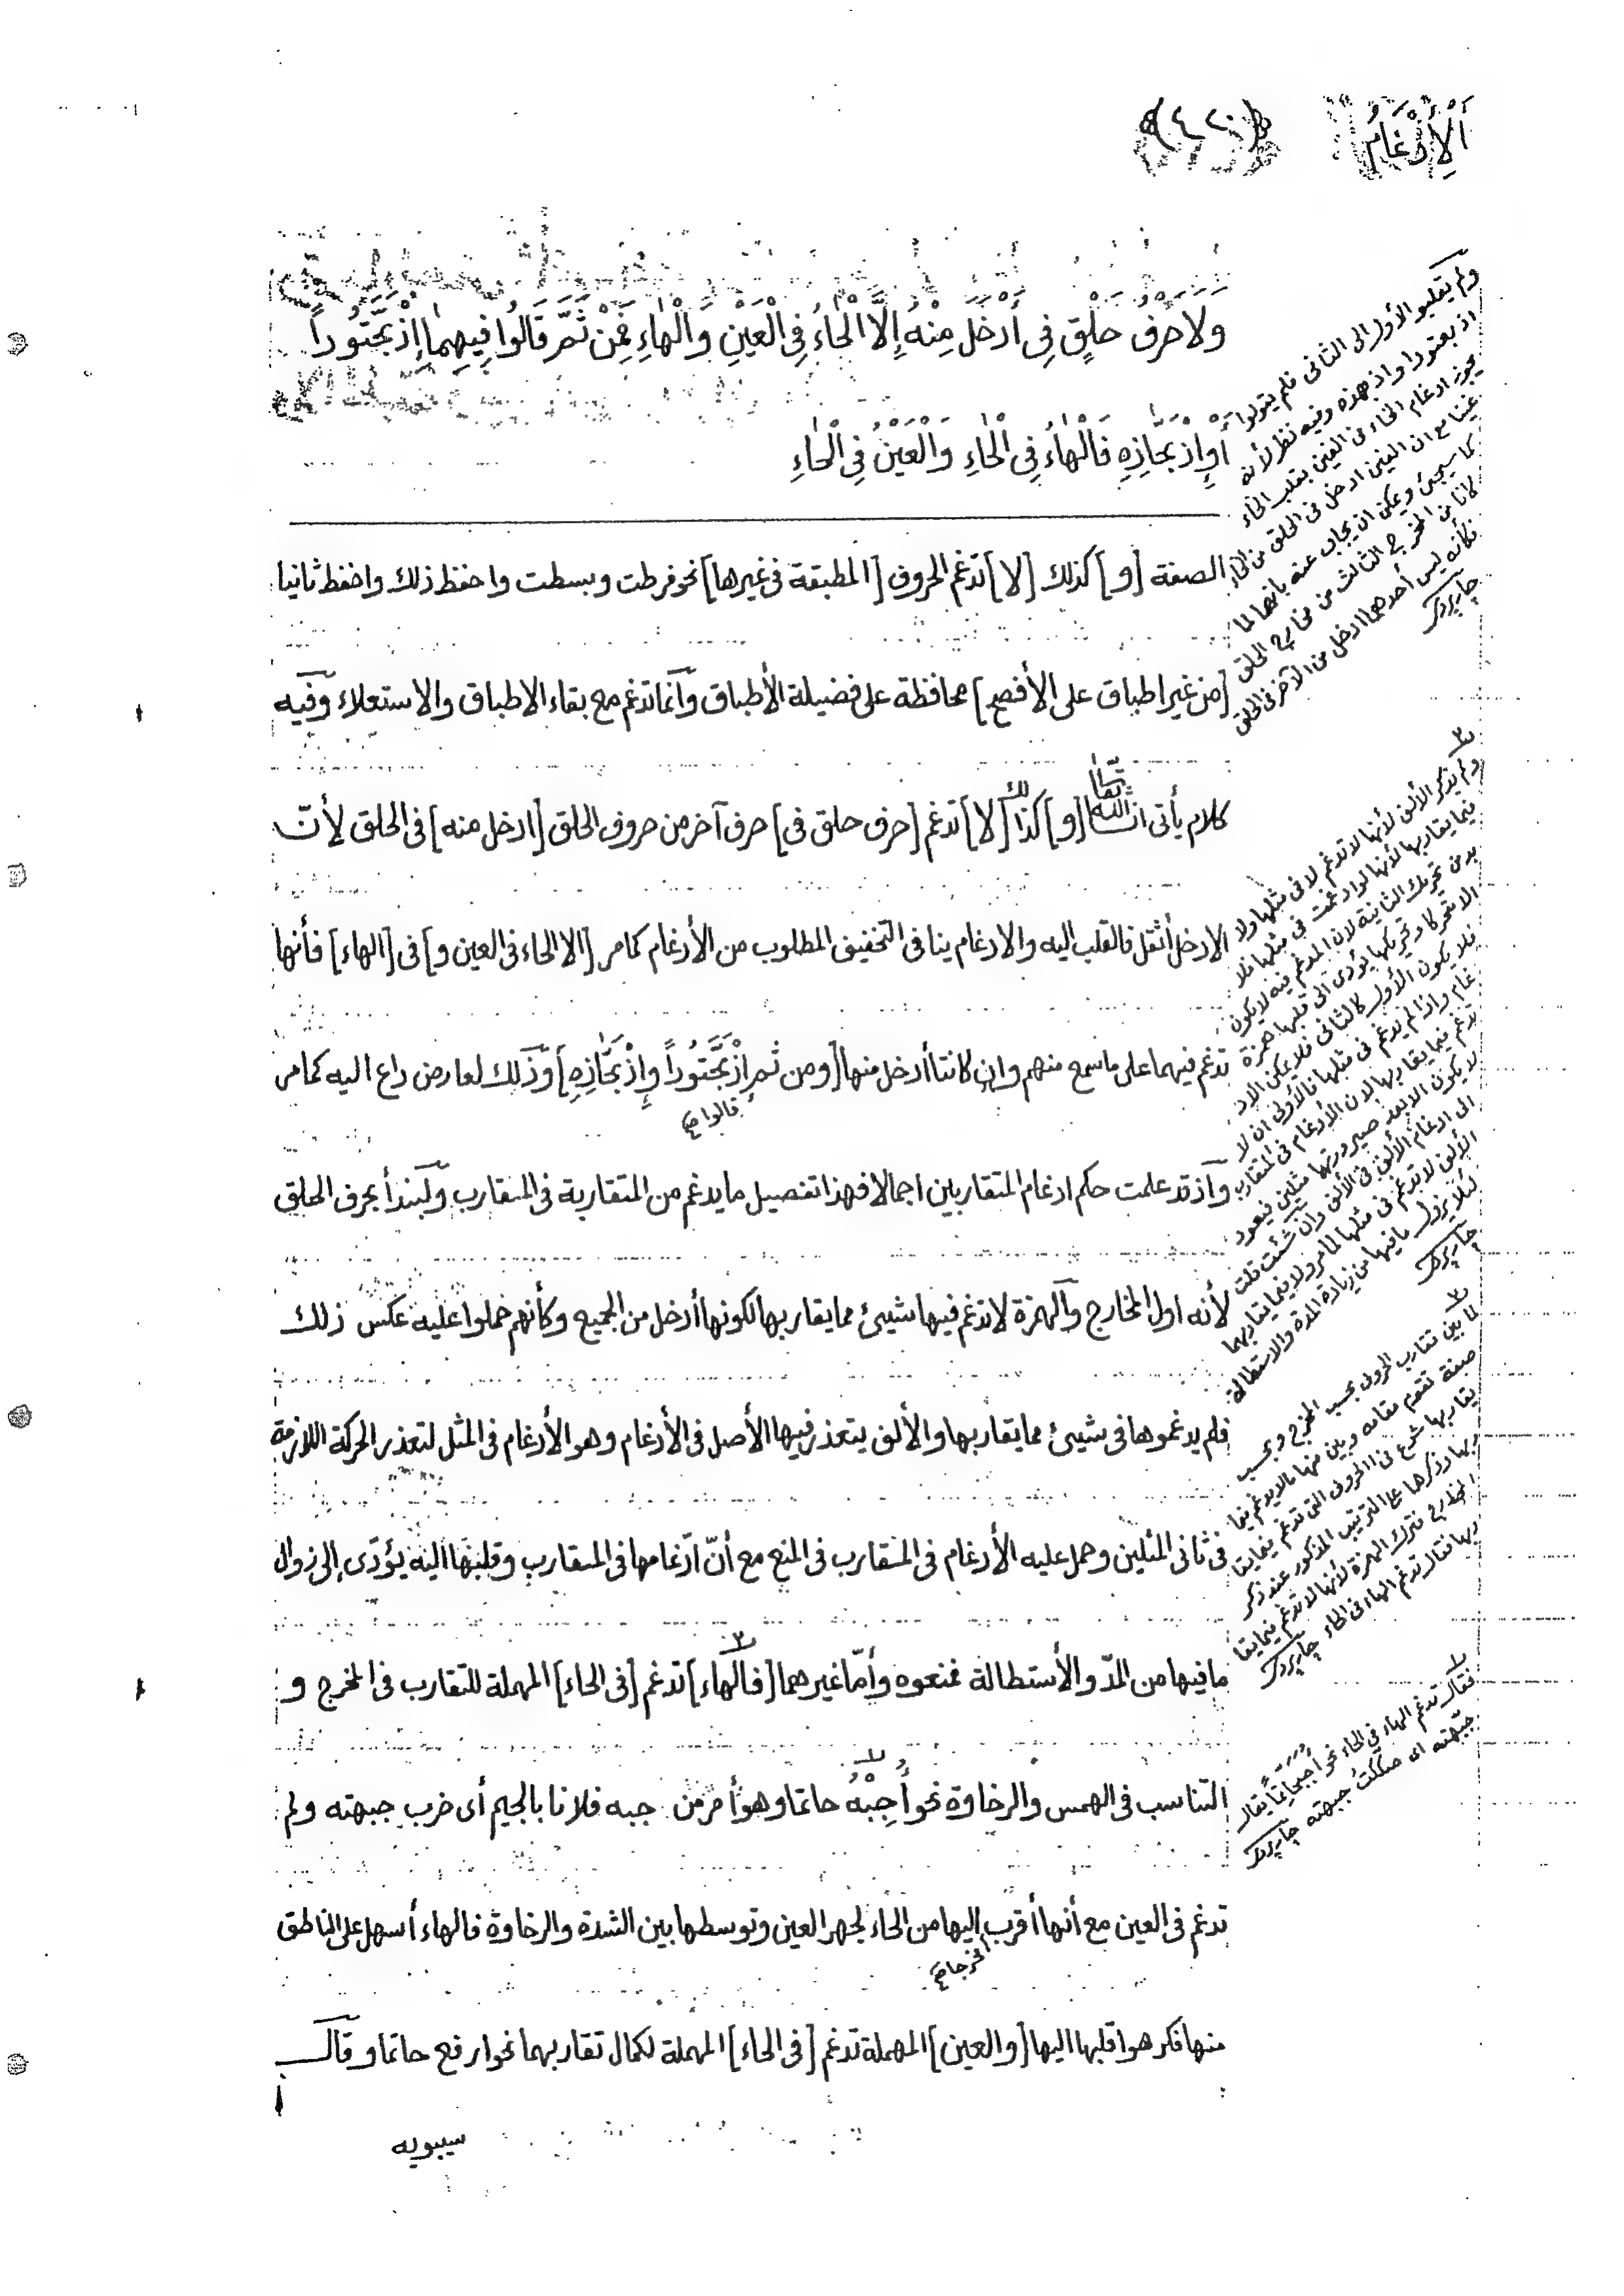 اَلْإِدْغَامُ
﴿٤٢٠﴾
وَلَا حَرْفُ حَلْقٍ فِي أَدْخَلَ مِنْهُ إِلَّا الْحَاءُ فِي الْعَيْنِ وَالْهَاءِ فَمِنْ ثَمَّ قَالُوا فِيهِمَا إِذْبَحَّتُوداً
أَوِ إِذْبَحَّاذِهِ فَالْهَاءُ فِي الْحَاءِ وَالْعَيْنُ فِي الْحَاءِ
الصفة [و] كذلك [لا] تدغم الحروف [المطبقة في غيرها] نحو فرطت وبسطت واحفظ ذلك واحفظ ثانيا
[من غير اطباق على الأفصح] محافظة على فضيلة الأطباق وانما تدغم مع بقاء الاطباق والاستعلاء وفيه
كلام يأتى انشاء الله تعالى [و] كذلك [لا] تدغم [حرف حلق في] حرف آخر من حروف الحلق [ادخل منه] في الحلق لأنّ
الادخل أثقل فالقلب اليه والادغام ينافى التخفيف المطلوب من الأدغام كما مر [الا الحاء في العين و] في [الهاء] فأنها
تدغم فيهما على ما سمع منهم وان كانتا أدخل منها [ومن ثم إذْبَحَّتُوداً وإِذْبَحَّاذِهِ] وذلك لعارض داع اليه كما مر
قالوا صح
واذ قد علمت حكم ادغام المتقاربين اجمالا فهذا تفصيل ما يدغم من المتقاربة في المتقارب ولنبدأ بحرف الحلق
لأنه اول المخارج والهمزة لا تدغم فيها شيئ مما يقاربها لكونها أدخل من الجميع وكأنهم حملوا عليه عكس ذلك
فلم يدغموها في شيئ مما يقاربها والألف يتعذر فيها الأصل في الأدغام وهو الأدغام في المثل لتعذر الحركة اللازمة
في ثانى المثلين وحمل عليه الأدغام في المتقارب في المنع مع أنّ ادّغامها في المتقارب وقلبها اليه يؤدّى إلى زوال
ما فيها من المدّ والأستطالة فمنعوه وأمّا غيرهما [فالهاء] تدغم [في الحاء] المهملة للتقارب في المخرج و
التناسب في الهمس والرخاوة نحو أُجبْهُ حاتما وهو أمر من جبه فلانا بالجيم أى ضرب جبهته ولم
تدغم في العين مع أنها أقرب اليها من الحاء لجهر العين وتوسطها بين الشدة والرخاوة فالهاء أسهل على الناطق
مخرجا صح
منها فكرهوا قلبها اليها [والعين] المهملة تدغم [في الحاء] المهملة لكمال تقاربهما نحو ارفع حاتما وقال
سيبويه
ولم يقلبو الأول الى الثانى فلم يقولوا
اذ بعتودا واذ بهذه وفيه نظر لأنه
يجوز ادغام الحاء في الغين بقلب الخاء
غينا مع ان الغين ادخل في الحلق من الخاء
كما سيجئ ويمكن ان يجاب عنه بانهما لما
كانا من المخرج الثالث من مخارج الحلق
فكأنه ليس أحدهما ادخل من الآخر في الحلق
جاربردى
٢
ولم يذكر الألف لأنها لا تدغم لا في مثلها ولا
فيما يقاربها لأنها لو ادغمت في مثلها فلا
بد من تحريك الثانية لان المدغم فيه لا يكون
الا متحركا وتحريكها يؤدى الى قلبها همزة
فلا يكون الأول كالثانى فلا يمكن الاد
غام واذا لم يدغم في مثلها فالأولى ان لا
تدغم فيما يقاربها لان الأدغام في المتقارب
لا يكون الا بعد صيرورتها مثلين فيعود
الى ادغام الألف في الألف وان شئت قلت
الألف لا تدغم في مثلها لما مر ولا فيما يقاربهما
لئلا يزول ما فيها من زيادة المدة والاستطالة
جاربردى
٣
لما بين تقارب الحروف بحسب المخرج وبحسب
صفة تقوم مقامه وبين منها ما لا يدغم فيما
يقاربها شرع في الحروف التى تدغم فيما يقا
ربها وذكرها على الترتيب المذكور عند ذكر
المخارج فترك الهمزة لأنها لا تدغم فيما يقا
ربها فقال تدغم الهاء في الحاء جاربردى
فقال تدغم الهاء في الحاء نحو أجبحاتماً يقال
جبهته اى صككت جبهته جاربردى